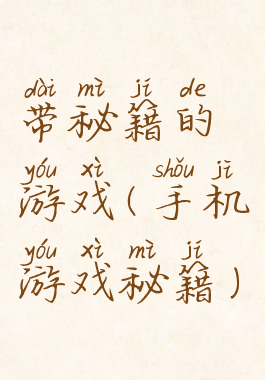 dài mì jí de
带秘籍的
yóu xì shǒu jī
游戏(手机
yóu xì mì jí
游戏秘籍)